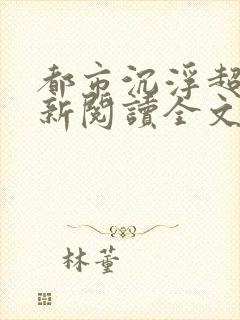 都市沉浮超
新閱讀全文
林董